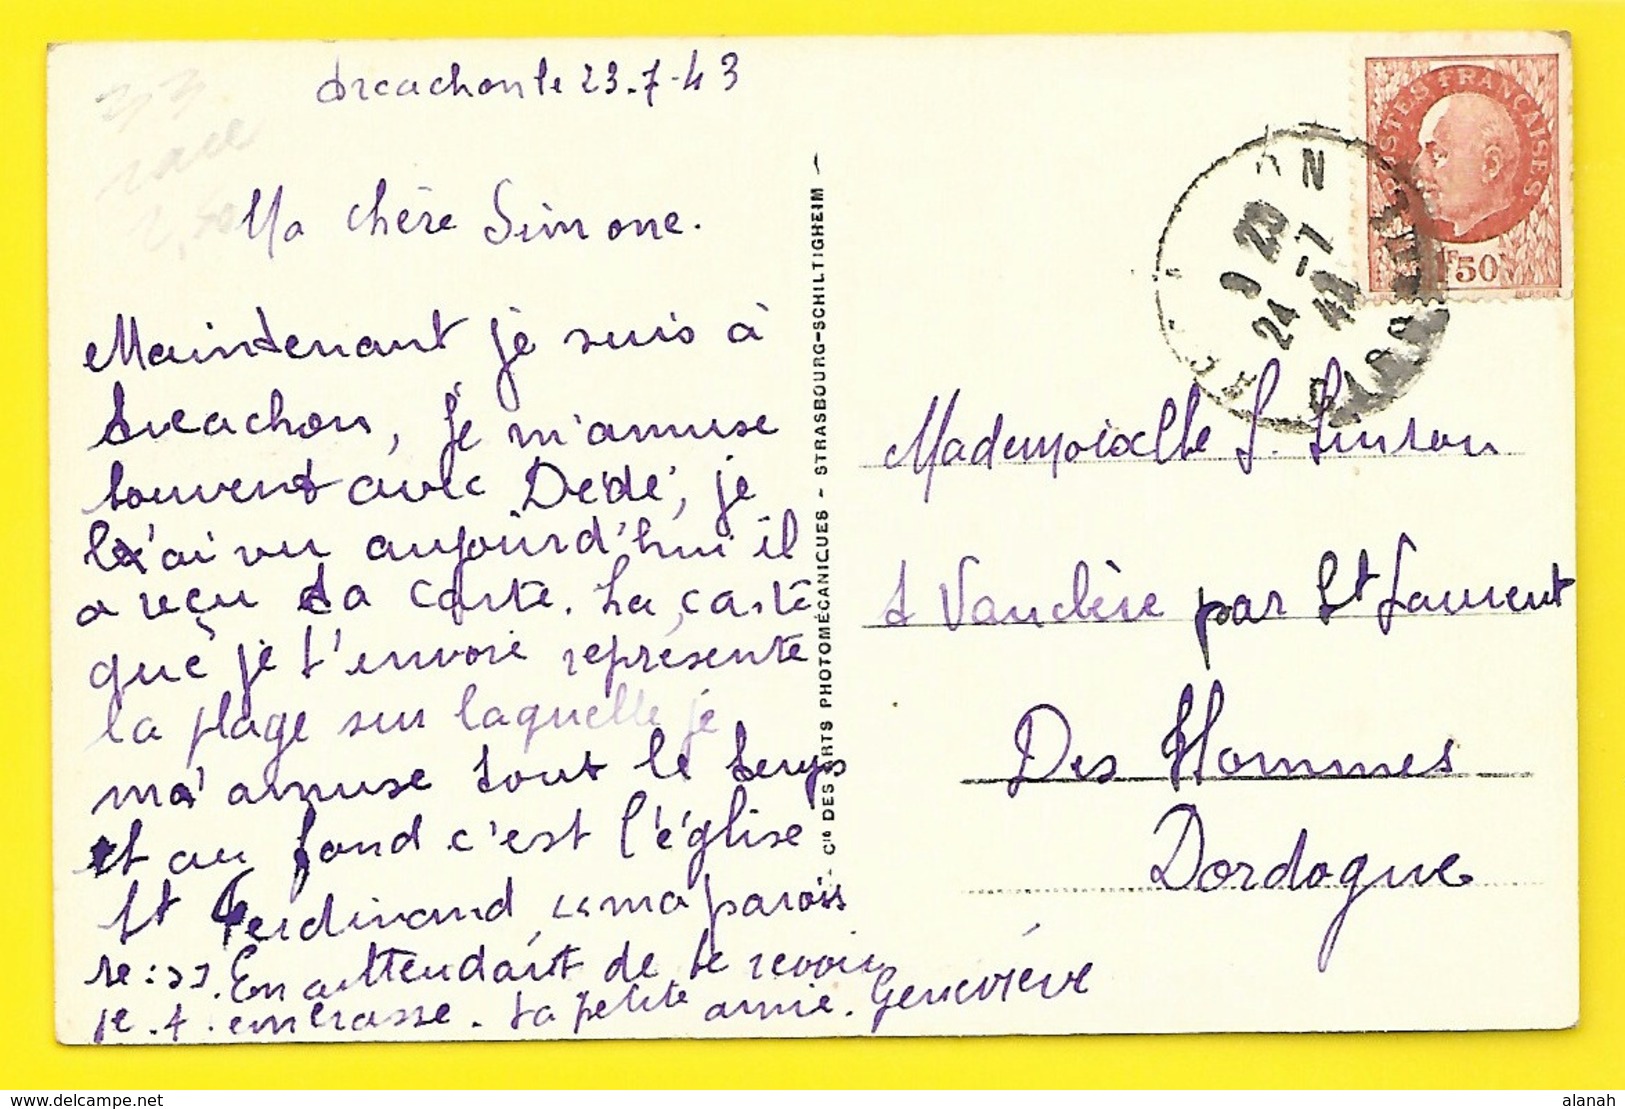 Arcachon le 23-7-43
Ma chère Simone.
Maintenant je suis à
Arcachon, je m'amuse
souvent avec Dédé, je
l'ai vu aujourd'hui il
a reçu ta carte. La carte
que je t'envoie représente
la plage sur laquelle je
m'amuse tout le temps
et au fond c'est l'église
St Ferdinand "ma parois
se:". En attendant de te revoir
je t'embrasse. ta petite amie. Geneviève
Cie DES ARTS PHOTOMÉCANIQUES - STRASBOURG-SCHILTIGHEIM
POSTES FRANÇAISES
1F50
MERSIER
9 23
24 -7
Mademoiselle S.
à Vauclère par St Laurent
Des Hommes
Dordogne
alanah